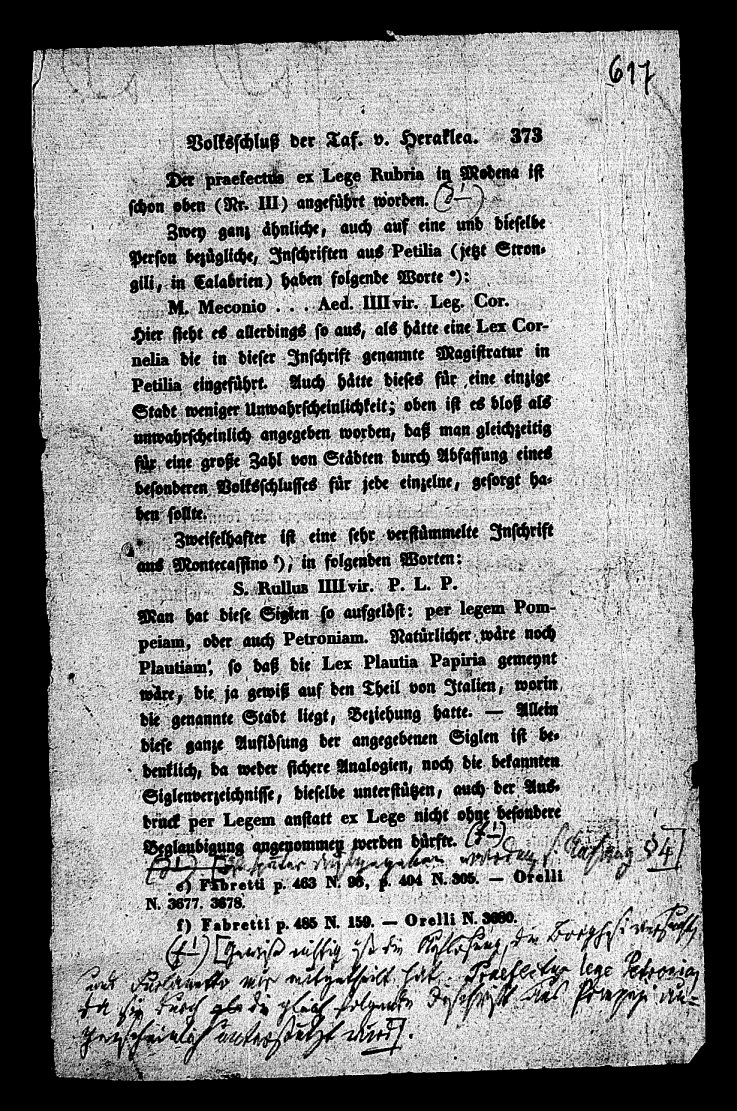 617
Volksschluß der Taf. v. Heraklea. 373
Der praefectus ex Lege Rubria in Modena ist
schon oben (Nr. III) angeführt worden.
Zwey ganz ähnliche, auch auf eine und dieselbe
Person bezügliche, Inschriften aus Petilia (jetzt Stron-
gili, in Calabrien) haben folgende Worte e):
M. Meconio . . . Aed. IIIIvir. Leg. Cor.
Hier sieht es allerdings so aus, als hätte eine Lex Cor-
nelia die in dieser Inschrift genannte Magistratur in
Petilia eingeführt. Auch hätte dieses für eine einzige
Stadt weniger Unwahrscheinlichkeit; oben ist es bloß als
unwahrscheinlich angegeben worden, daß man gleichzeitig
für eine große Zahl von Städten durch Abfassung eines
besonderen Volksschlusses für jede einzelne, gesorgt ha-
ben sollte.
Zweifelhafter ist eine sehr verstümmelte Inschrift
aus Montecassino f), in folgenden Worten:
S. Rullus IIIIvir. P. L. P.
Man hat diese Siglen so aufgelöst: per legem Pom-
peiam, oder auch Petroniam. Natürlicher wäre noch
Plautiam, so daß die Lex Plautia Papiria gemeynt
wäre, die ja gewiß auf den Theil von Italien, worin
die genannte Stadt liegt, Beziehung hatte. — Allein
diese ganze Auflösung der angegebenen Siglen ist be-
denklich, da weder sichere Analogien, noch die bekannten
Siglenverzeichnisse, dieselbe unterstützen, auch der Aus-
druck per Legem anstatt ex Lege nicht ohne besondere
Beglaubigung angenommen werden dürfte.
worden, s. Anhang § 4]
e) Fabretti p. 463 N. 98, p. 404 N. 305. — Orelli
N. 3677. 3678.
f) Fabretti p. 485 N. 159. — Orelli N. 3680.
[Gewiß richtig ist die Auflösung, die Borghesi
und Furlanetto mir mitgetheilt hat: Praefectus lege Petronia,
da sie durch die gleich folgende Inschrift aus Pompeji au-
genscheinlich unterstützt wird].